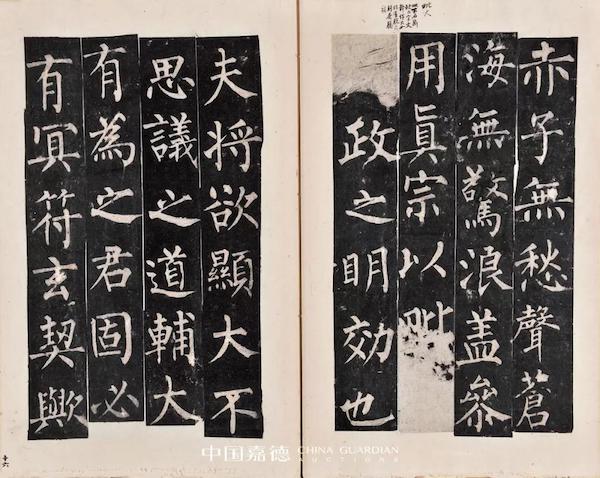 毗大
赤子無愁聲蒼
海無驚浪盖叅
用眞宗以毗
政之明効也
夫将欲顯大不
思議之道輔大
有為之君固必
有冥符玄契歟
十六
中国嘉德 CHINA GUARDIAN
AUCTIONS